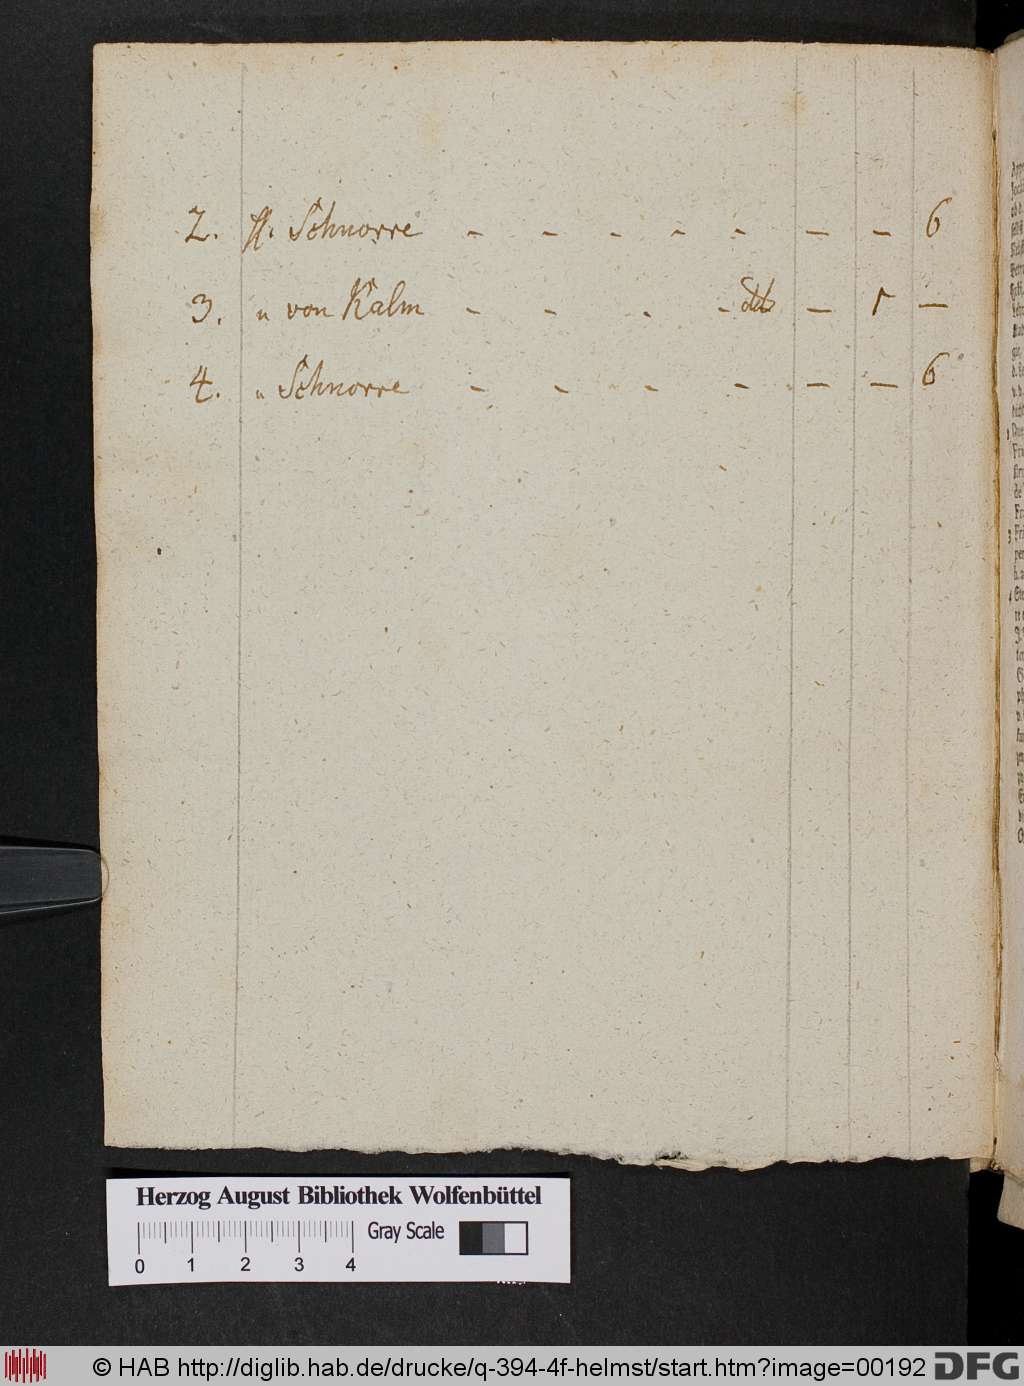 2. H. Schnorre - - - - - - - 6
3. " von Kalm - - - - ddt - 1 -
4. " Schnorre - - - - - - 6
Herzog August Bibliothek Wolfenbüttel
Gray Scale
0 1 2 3 4
© HAB http://diglib.hab.de/drucke/q-394-4f-helmst/start.htm?image=00192 DFG